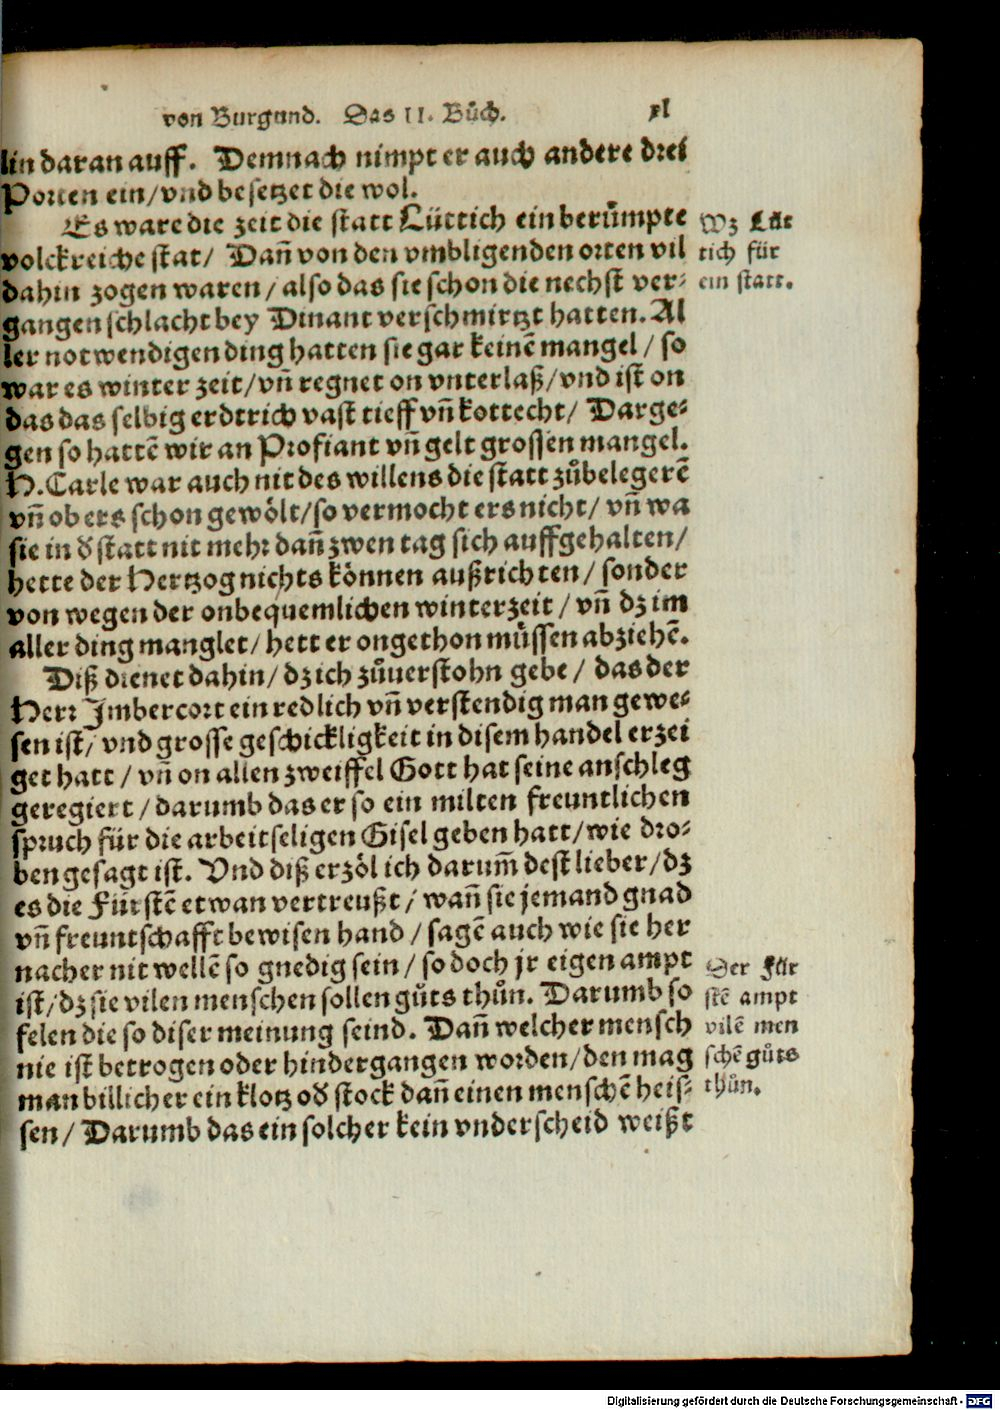 von Burgund. Das II. Bůch. xl
lin daran auff. Demnach nimpt er auch andere drei
Porten ein/vnd besetzet die wol.
Es ware die zeit die statt Lüttich ein berůmpte
volckreiche stat/ Dañ von den vmbligenden orten vil
dahin zogen waren/also das sie schon die nechst ver-
gangen schlacht bey Dinant verschmirtzt hatten. Al
ler notwendigen ding hatten sie gar keinē mangel/so
war es winter zeit/vñ regnet on vnterlaß/vnd ist on
das das selbig erdtrich vast tieff vñ kottecht/ Darge-
gen so hattē wir an Profiant vñ gelt grossen mangel.
H. Carle war auch nit des willens die statt zůbelegerē
vñ ob ers schon gewölt/so vermocht ers nicht/ vñ wa
sie in d statt nit mehr dañ zwen tag sich auffgehalten/
hette der Hertzog nichts können außrichten/sonder
von wegen der onbequemlichen winterzeit/vñ dz im
aller ding manglet/hett er ongethon müssen abziehē.
Diß dienet dahin/dz ich zůuerstohn gebe/ das der
Herr Imbercort ein redlich vñ verstendig man gewe-
sen ist/vnd grosse geschickligkeit in disem handel erzei
get hatt/vñ on allen zweiffel Gott hat seine anschleg
geregiert/darumb das er so ein milten freuntlichen
spruch für die arbeitseligen Gisel geben hatt/wie dro-
ben gesagt ist. Vnd diß erzöl ich darum̃ dest lieber/dz
es die Fürstē etwan vertreußt/wañ sie jemand gnad
vñ freuntschafft bewisen hand/sagē auch wie sie her
nacher nit wellē so gnedig sein/so doch jr eigen ampt
ist/dz sie vilen menschen sollen gůts thůn. Darumb so
felen die so diser meinung seind. Dañ welcher mensch
nie ist betrogen oder hindergangen worden/den mag
man billicher ein klotz od stock dañ einen menschē heis-
sen/Darumb das ein solcher kein vnderscheid weißt
Wz Lüt
tich für
ein statt.
Der Für
stē ampt
vilē men
schē gůts
thůn.
Digitalisierung gefördert durch die Deutsche Forschungsgemeinschaft - DFG